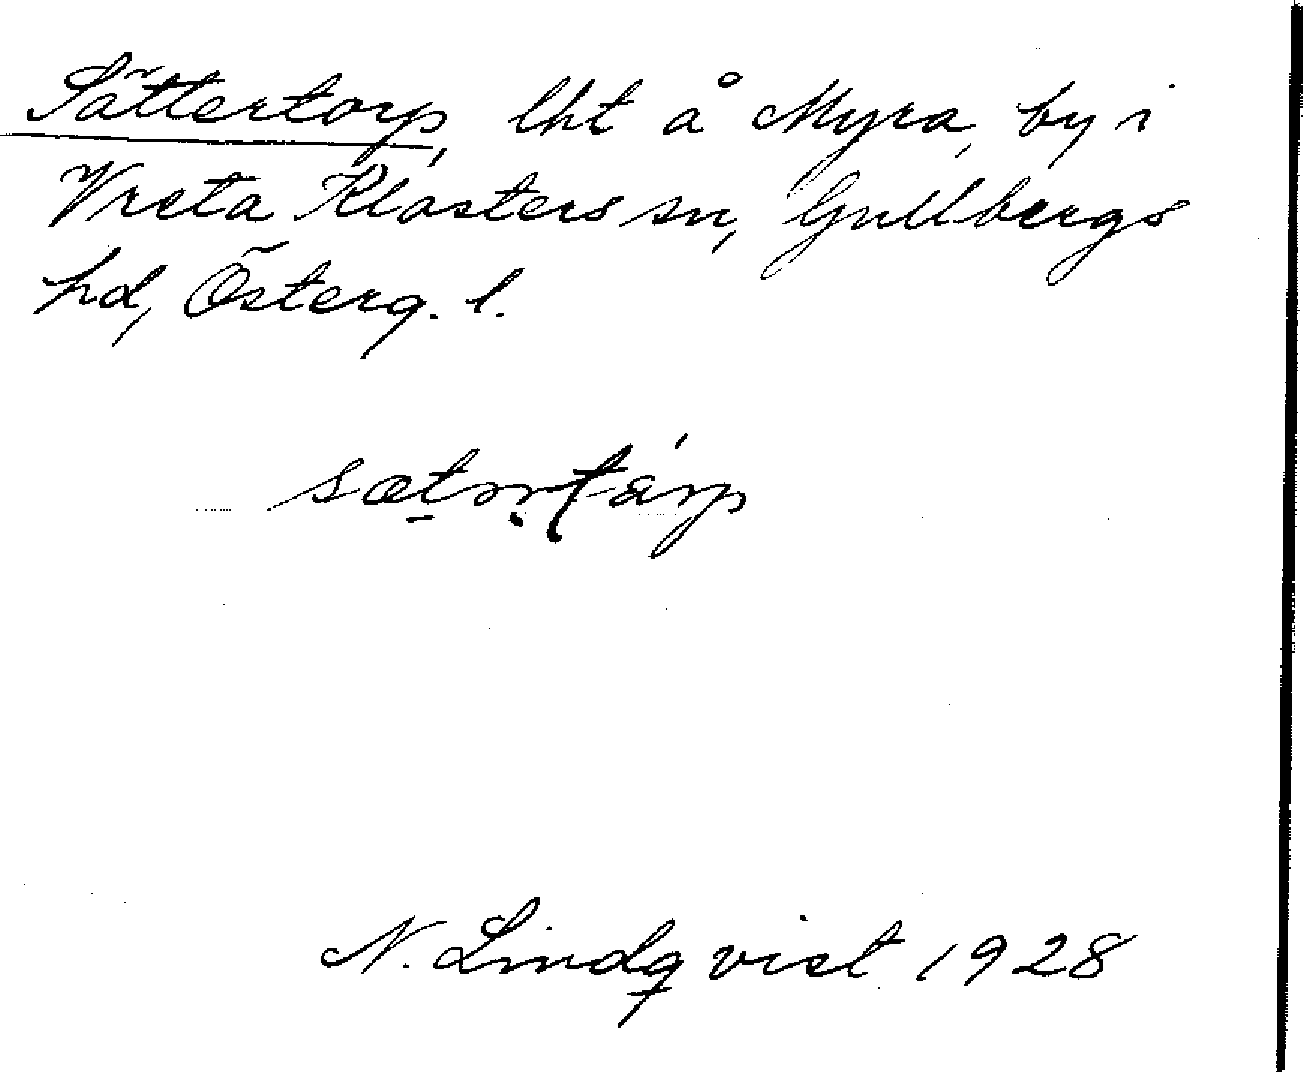 Sättertorp, lht å Myra, by i
Vreta Klosters sn, Gullbergs
hd, Österg. l.
N. Lindqvist 1928